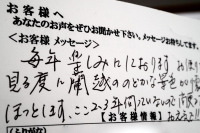 お客様へ
あなたのお声をぜひお聞かせ下さい。メッセージお待ちしてます。
<お客様 メッセージ>
毎年楽しみにしております
見る度に蘭越ののどかな景色が
ほっとします。ここ2~3年伺っていないので
【お客様情報】